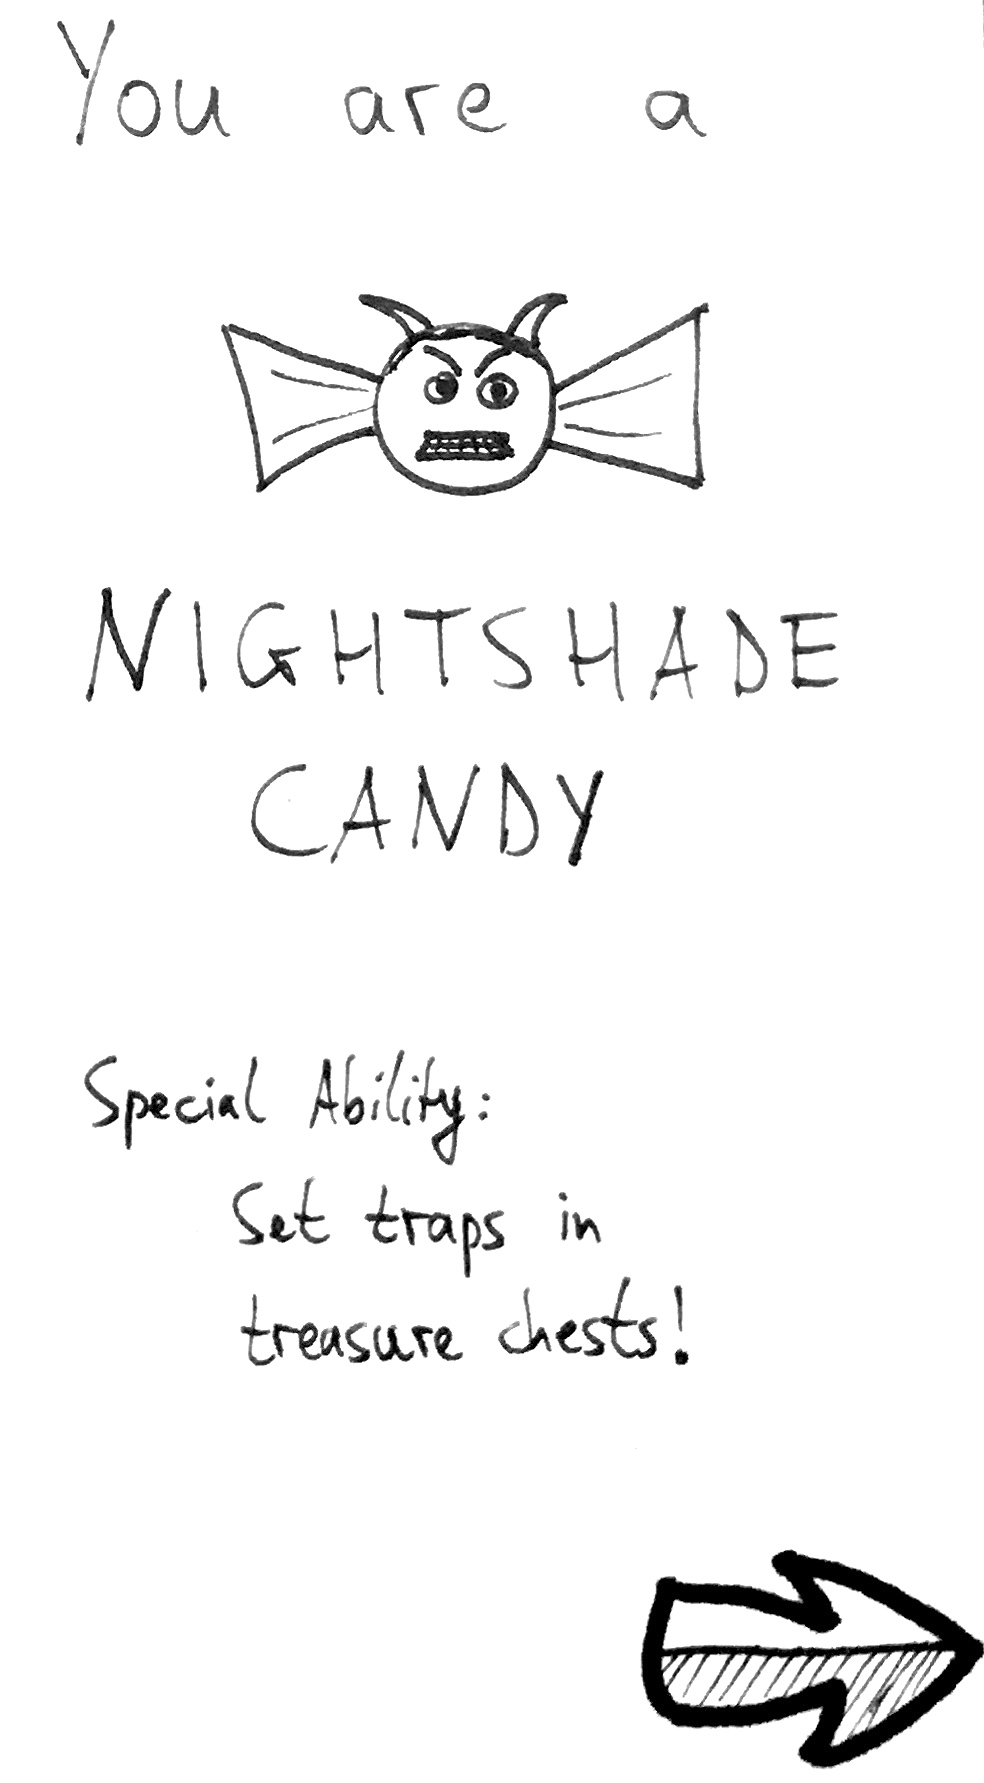 You are a
NIGHTSHADE
CANDY
Special Ability:
Set traps in
treasure chests!